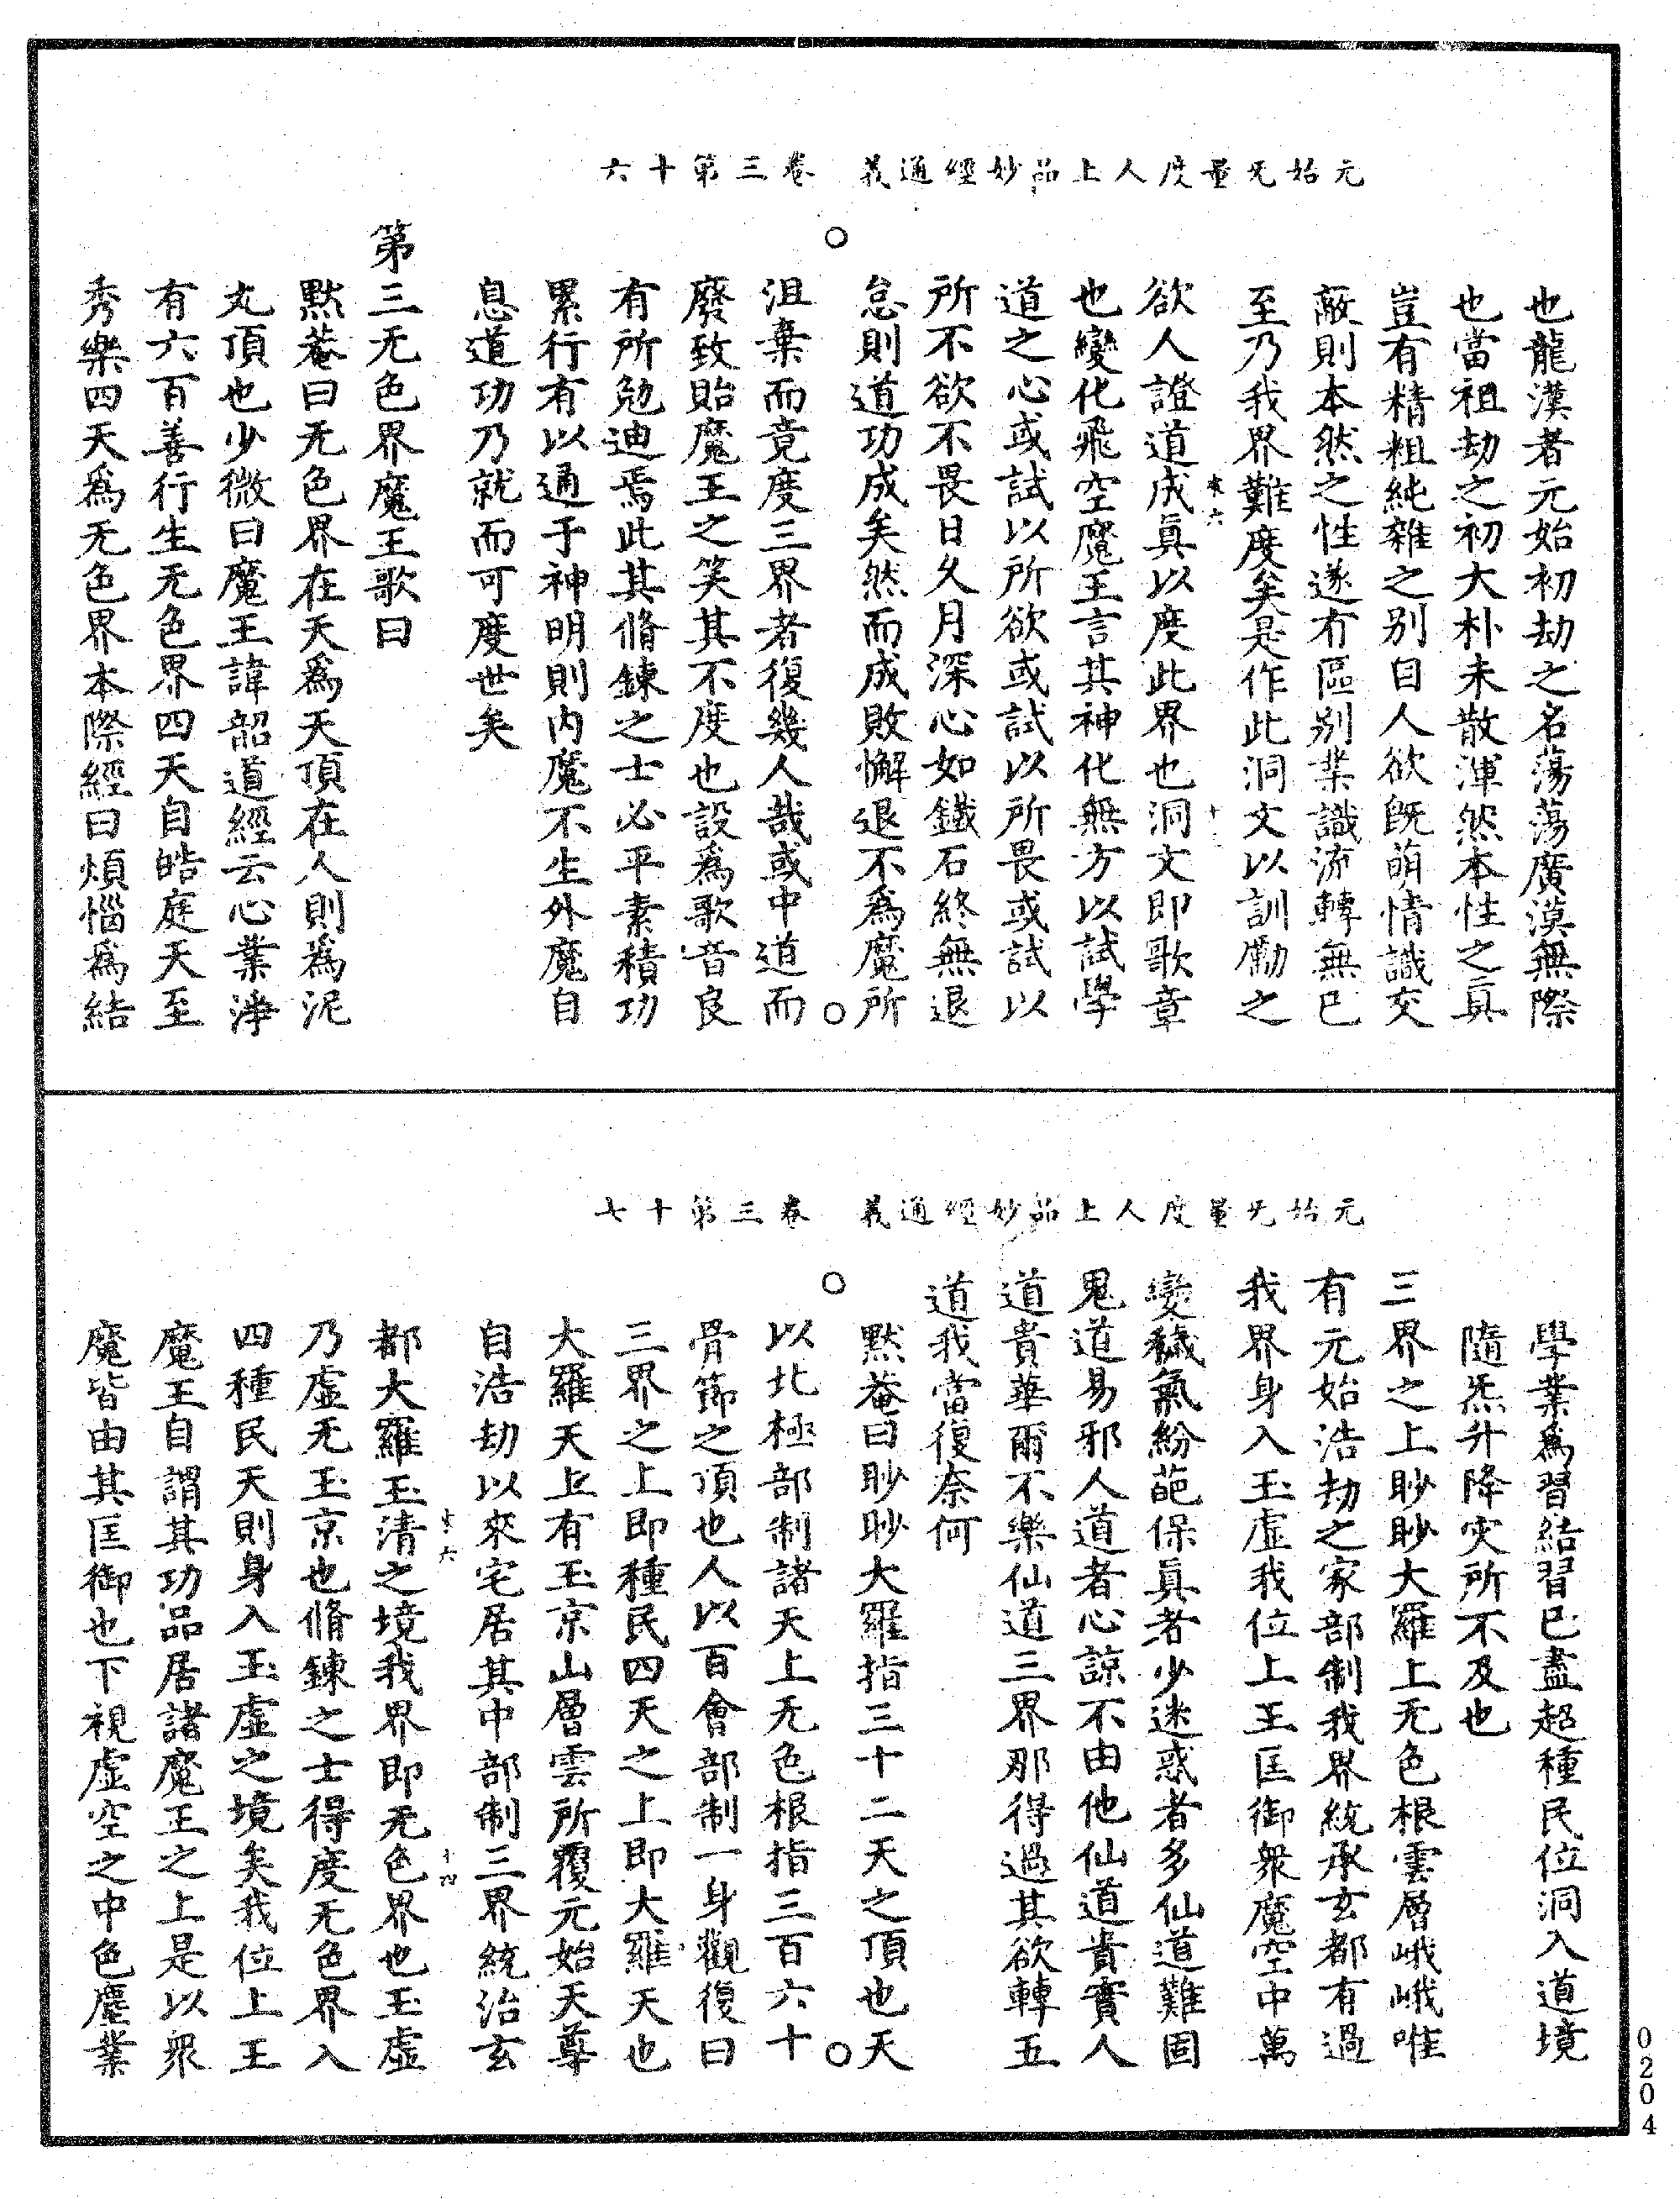 元始无量度人上品妙經通義　卷三第十六
也龍漢者元始初劫之名蕩蕩廣漠無際
也當祖劫之初大朴未散渾然本性之眞
豈有精粗純雜之别自人欲旣萌情識交
敵則本然之性遂有區别業識流轉無已
至乃我界難度矣是作此洞文以訓勵之
欲人證道成眞以度此界也洞文即歌章
也變化飛空魔王言其神化無方以試學
道之心或試以所欲或試以所畏或試以
所不欲不畏日久月深心如鐵石終無退
怠則道功成矣然而成敗懈退不爲魔所
沮棄而竟度三界者復幾人哉或中道而
廢致貽魔王之笑其不度也設爲歌音良
有所勉迪焉此其脩鍊之士必平素積功
累行有以通于神明則内魔不生外魔自
息道功乃就而可度世矣
第三无色界魔王歌曰
默菴曰无色界在天爲天頂在人則爲泥
丸頂也少微曰魔王諱韶道經云心業淨
有六百善行生无色界四天自皓庭天至
秀樂四天爲无色界本際經曰煩惱爲結
元始无量度人上品妙經通義　卷三第十七
學業爲習結習已盡超種民位洞入道境
隨炁升降灾所不及也
三界之上眇眇大羅上无色根雲層峨峨唯
有元始浩劫之家部制我界統承玄都有過
我界身入玉虛我位上王匡御衆魔空中萬
變穢氣紛葩保眞者少迷惑者多仙道難固
鬼道易邪人道者心諒不由他仙道貴實人
道貴華爾不樂仙道三界那得過其欲轉五
道我當復奈何
默菴曰眇眇大羅指三十二天之頂也天
以北極部制諸天上无色根指三百六十
骨節之頂也人以百會部制一身觀復曰
三界之上即種民四天之上即大羅天也
大羅天上有玉京山層雲所覆元始天尊
自浩劫以來宅居其中部制三界統治玄
都大羅玉清之境我界即无色界也玉虛
乃虛无玉京也脩鍊之士得度无色界入
四種民天則身入玉虛之境矣我位上王
魔王自謂其功品居諸魔王之上是以衆
魔皆由其匡御也下視虛空之中色塵業
0204